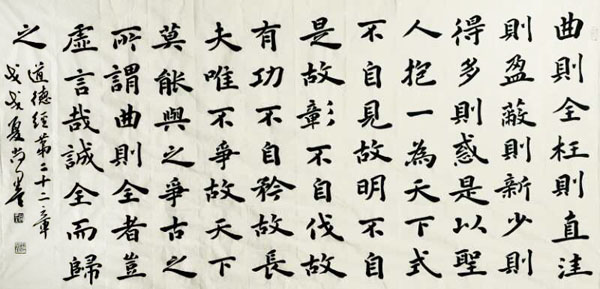 曲則全枉則直洼
則盈蔽則新少則
得多則惑是以聖
人抱一為天下式
不自見故明不自
是故彰不自伐故
有功不自矜故長
夫唯不爭故天下
莫能與之爭古之
所謂曲則全者豈
虛言哉誠全而歸
之
道德經第二十二章
戊戌夏尚